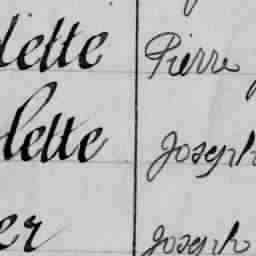 dette Pierre
lette Joseph
er Joseph